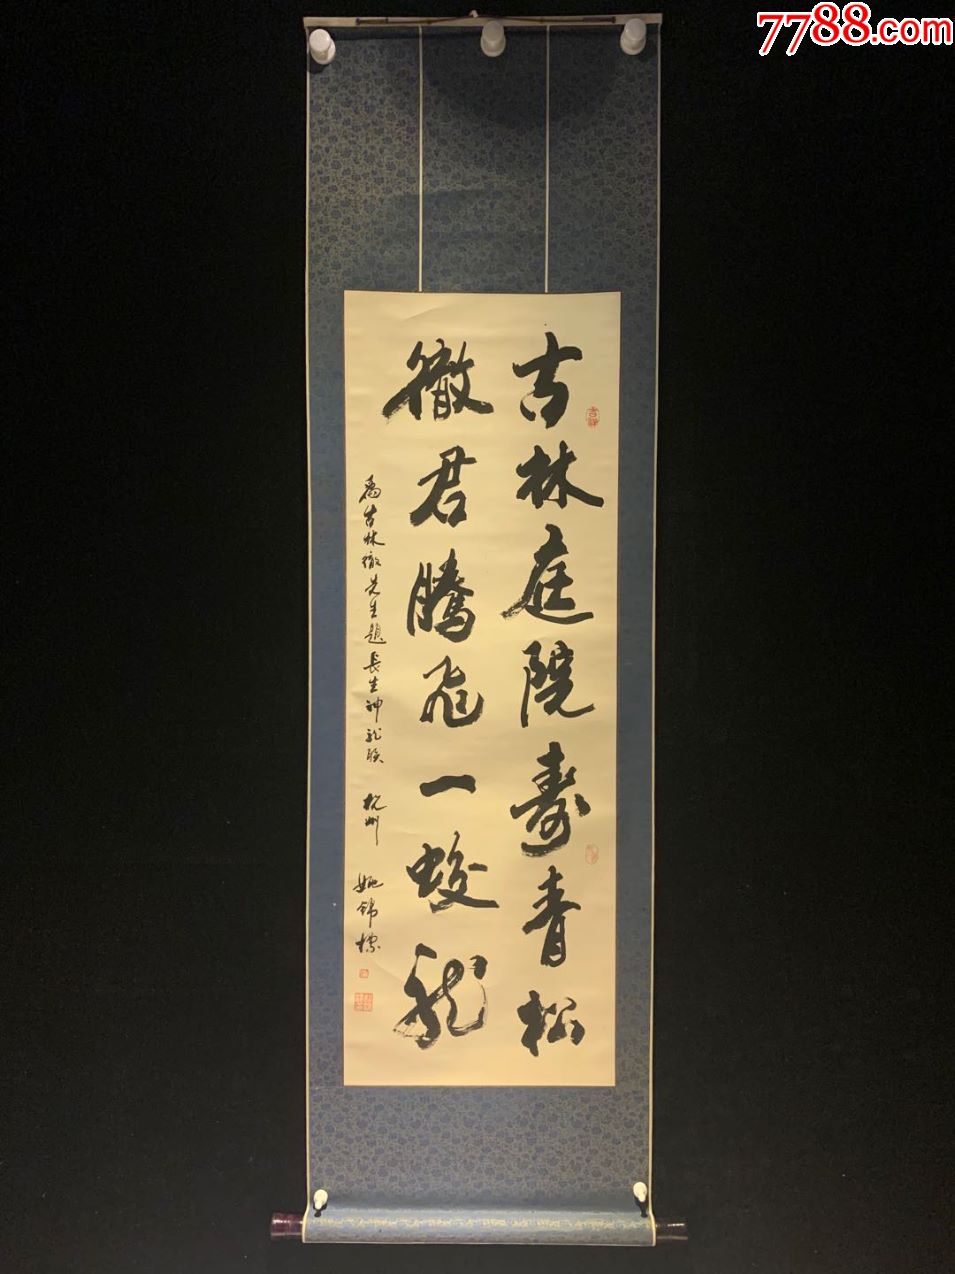 7788.com
吉林庭院壽青松
徹君騰飛一蛟龍
為吉林徹先生題長生神龍联 杭州 姚錦標
吉祥